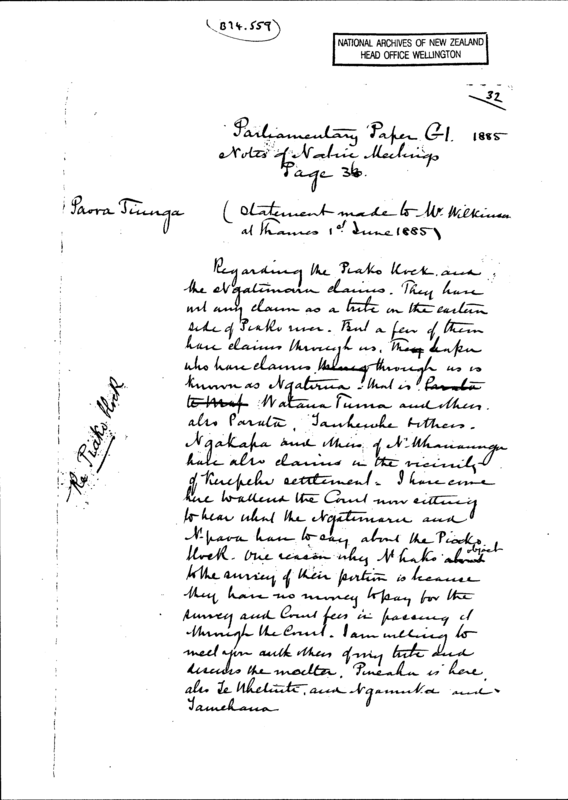 (B74.559)
NATIONAL ARCHIVES OF NEW ZEALAND
HEAD OFFICE WELLINGTON
32
Parliamentary Paper G1. 1885
Notes of Native Meetings
Page 36.
Paora Tiunga
(Statement made to Mr. Wilkinson
at Thames 1st June 1885)
Regarding the Piako Block and
the Ngatimaru claims. They have
not any claim as a tribe on the eastern
side of Piako river. But a few of them
have claims through us. The hapu
who have claims through us is
known as Ngaterua. that is Parata
Watana Tuma and others.
also Parata, Taukewke others.
Ngakapa and others of N. Whanaunga
have also claims in the vicinity
of Kerepehu settlement. I have come
here to attend the Court now sitting
to hear what the Ngatimaru and
N. paoa have to say about the Piako
Block. One reason why N. hako object
to the survey of their portion is because
they have no money to pay for the
survey and Court fees in passing it
through the Court. I am willing to
meet you with others of my tribe and
discuss the matter. Pineaha is here,
also Te and Ngamuka and
Tamehana
Re Piako Block